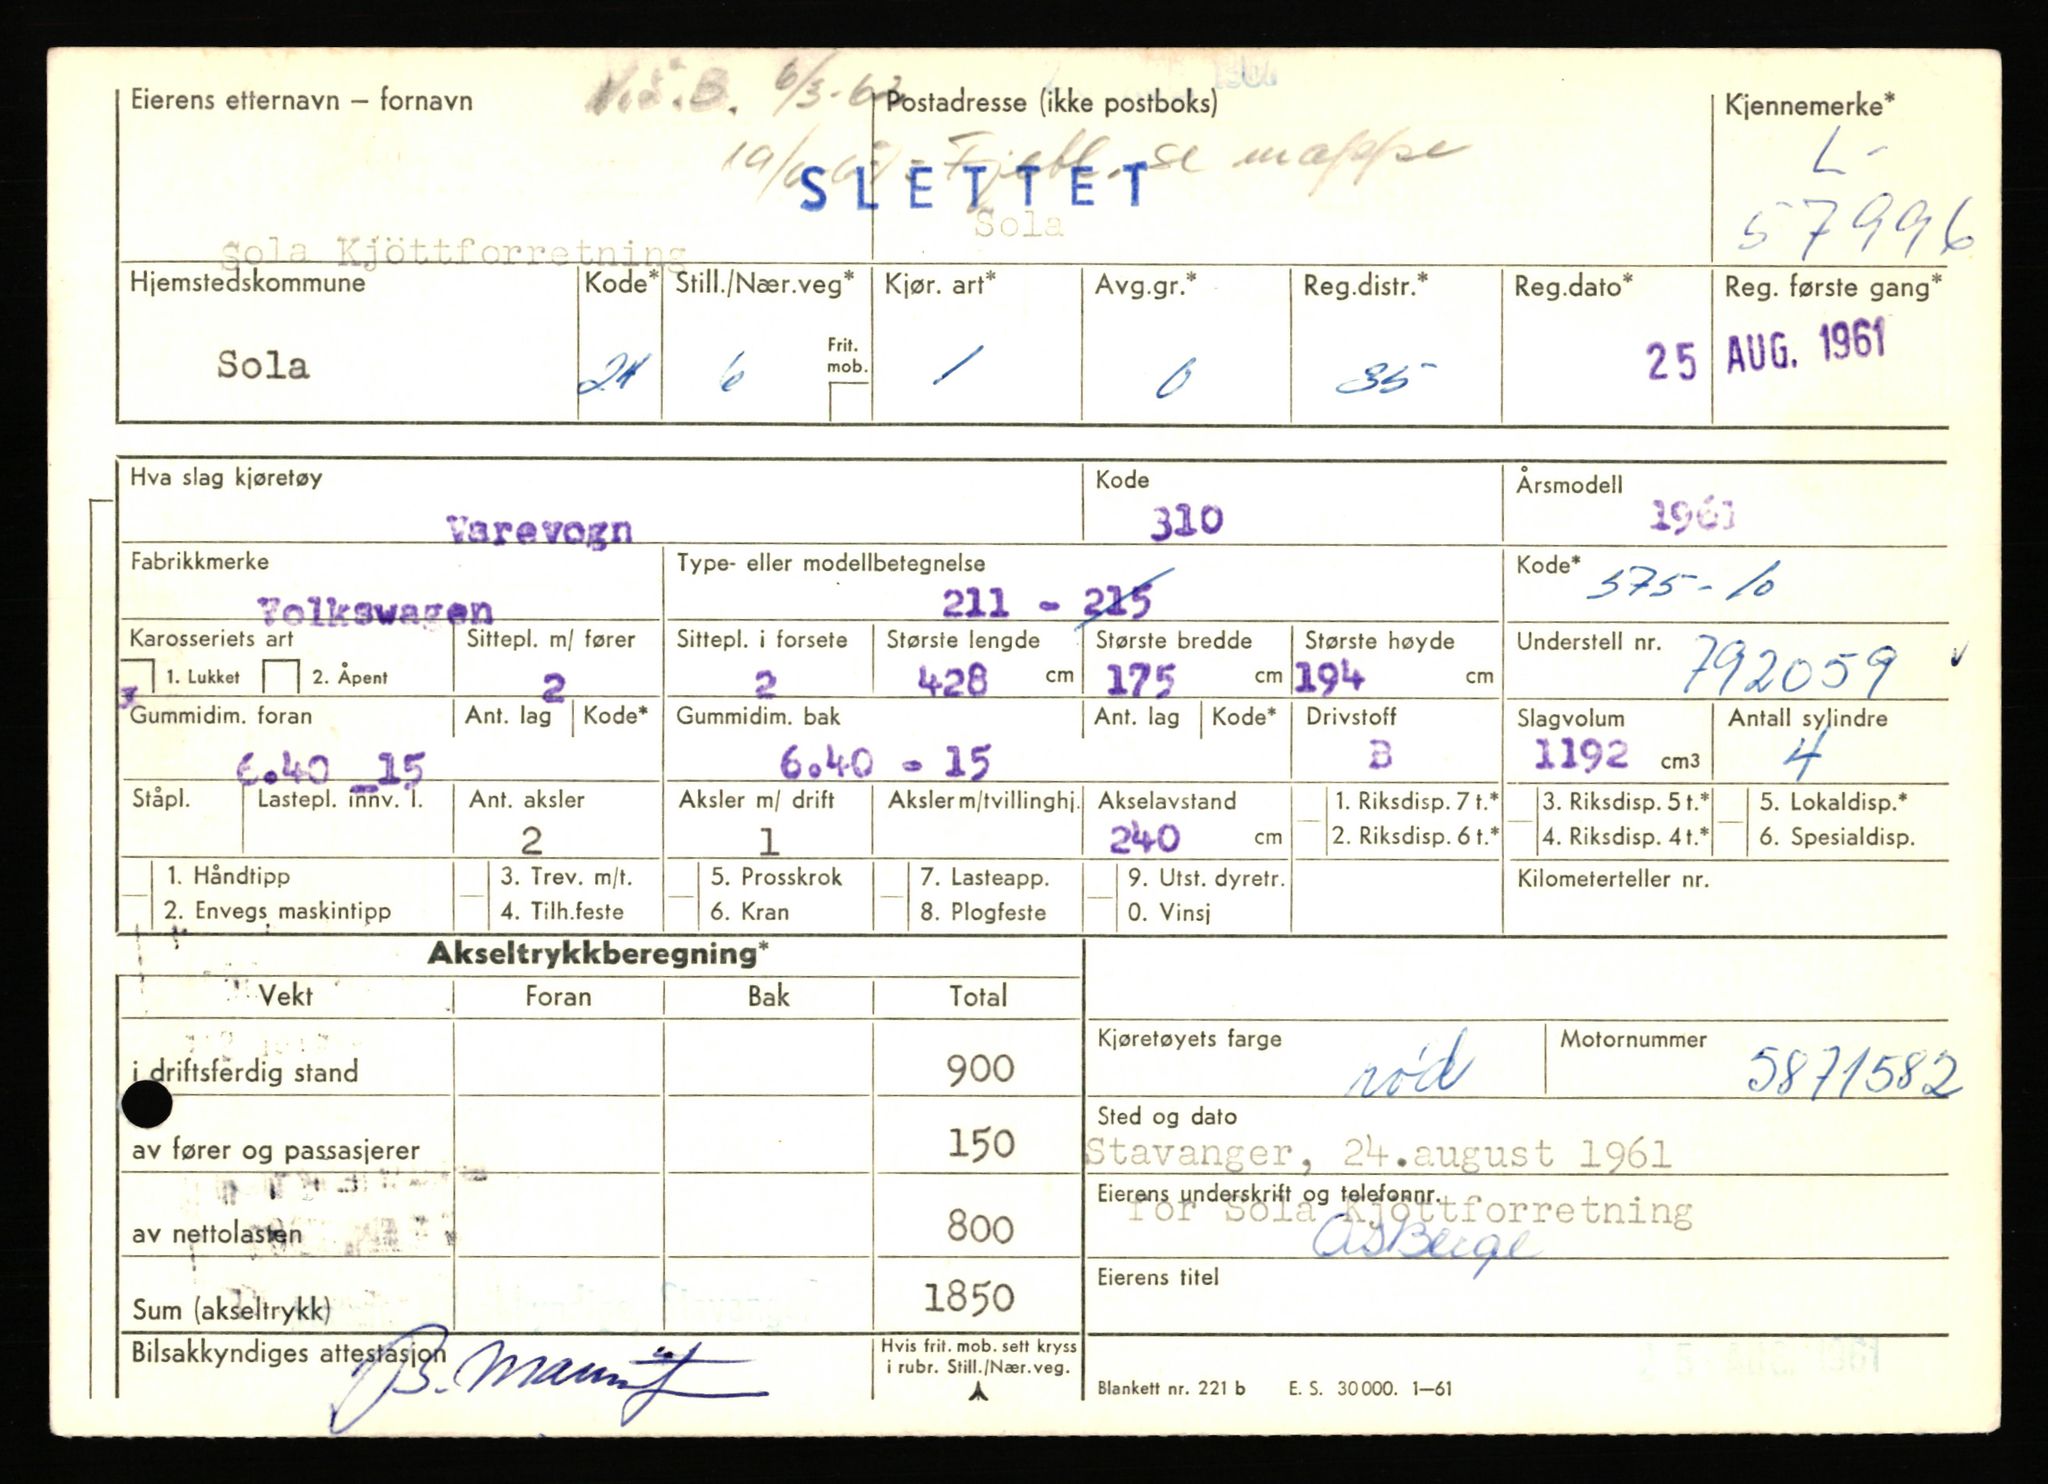 Eierens etternavn – fornavn
Postadresse (ikke postboks)
Kjennemerke*
6/3-63
se mappe
L-
SLETTET
57996
Sola
Sola Kjöttforretning
Hjemstedskommune Kode* Still./Nær.veg* Kjør. art* Avg.gr.* Reg.distr.* Reg.dato* Reg. første gang*
Sola 24 6 Frit. mob. 1 0 35 25 AUG. 1961
Hva slag kjøretøy Kode Årsmodell
Varevogn 310 1961
Fabrikkmerke Type- eller modellbetegnelse Kode*
Volkswagen 211 - 215 575-10
Karosseriets art Sittepl. m/ fører Sittepl. i forsete Største lengde Største bredde Største høyde Understell nr.
x 1. Lukket 2. Åpent 2 2 428 cm 175 cm 194 cm 792059
Gummidim. foran Ant. lag Kode* Gummidim. bak Ant. lag Kode* Drivstoff Slagvolum Antall sylindre
6.40 - 15 6.40 - 15 B 1192 cm3 4
Ståpl. Lastepl. innv. l. Ant. aksler Aksler m/ drift Aksler m/tvillinghj. Akselavstand 1. Riksdisp. 7 t.* 3. Riksdisp. 5 t.* 5. Lokaldisp.*
2 1 240 cm 2. Riksdisp. 6 t.* 4. Riksdisp. 4 t.* 6. Spesialdisp.
1. Håndtipp 3. Trev. m/t. 5. Prosskrok 7. Lasteapp. 9. Utst. dyretr. Kilometerteller nr.
2. Envegs maskintipp 4. Tilh.feste 6. Kran 8. Plogfeste 0. Vinsj
Akseltrykkberegning*
Vekt Foran Bak Total
i driftsferdig stand 900
av fører og passasjerer 150
av nettolasten 800
Sum (akseltrykk) 1850
Bilsakkyndiges attestasjon
Hvis frit. mob. sett kryss
i rubr. Still./Nær.veg.
Kjøretøyets farge Motornummer
rød 5871582
Sted og dato
Stavanger, 24.august 1961
Eierens underskrift og telefonnr.
for Sola Kjöttforretning
Eierens titel
Blankett nr. 221 b E. S. 30000. 1–61